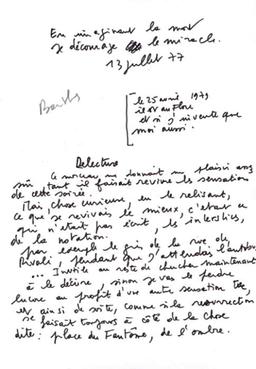 En imaginant la mort
je décourage le miracle.
13 juillet 77
Barthes
le 25 avril 1979
il est au Flore
et si j'invente que
moi aussi.
Delecture
Ce morceau me donnait un plaisir
tant il faisait revivre la sensation
de cette soirée.
Mais chose curieuse, en le relisant,
ce que je revivais le mieux, c'était ce
qui n'était pas écrit, les interstices,
de la notation.
par exemple le gris de la rue de
Rivoli, pendant que j'attendais l'autobus
... Inutile au reste de chercher maintenant
à le décrire, sinon je vais le perdre
encore au profit d'une autre sensation tue,
et ainsi de suite, comme si la résurrection
se faisait toujours à côté de la chose
dite: place du Fantôme, de l'ombre.